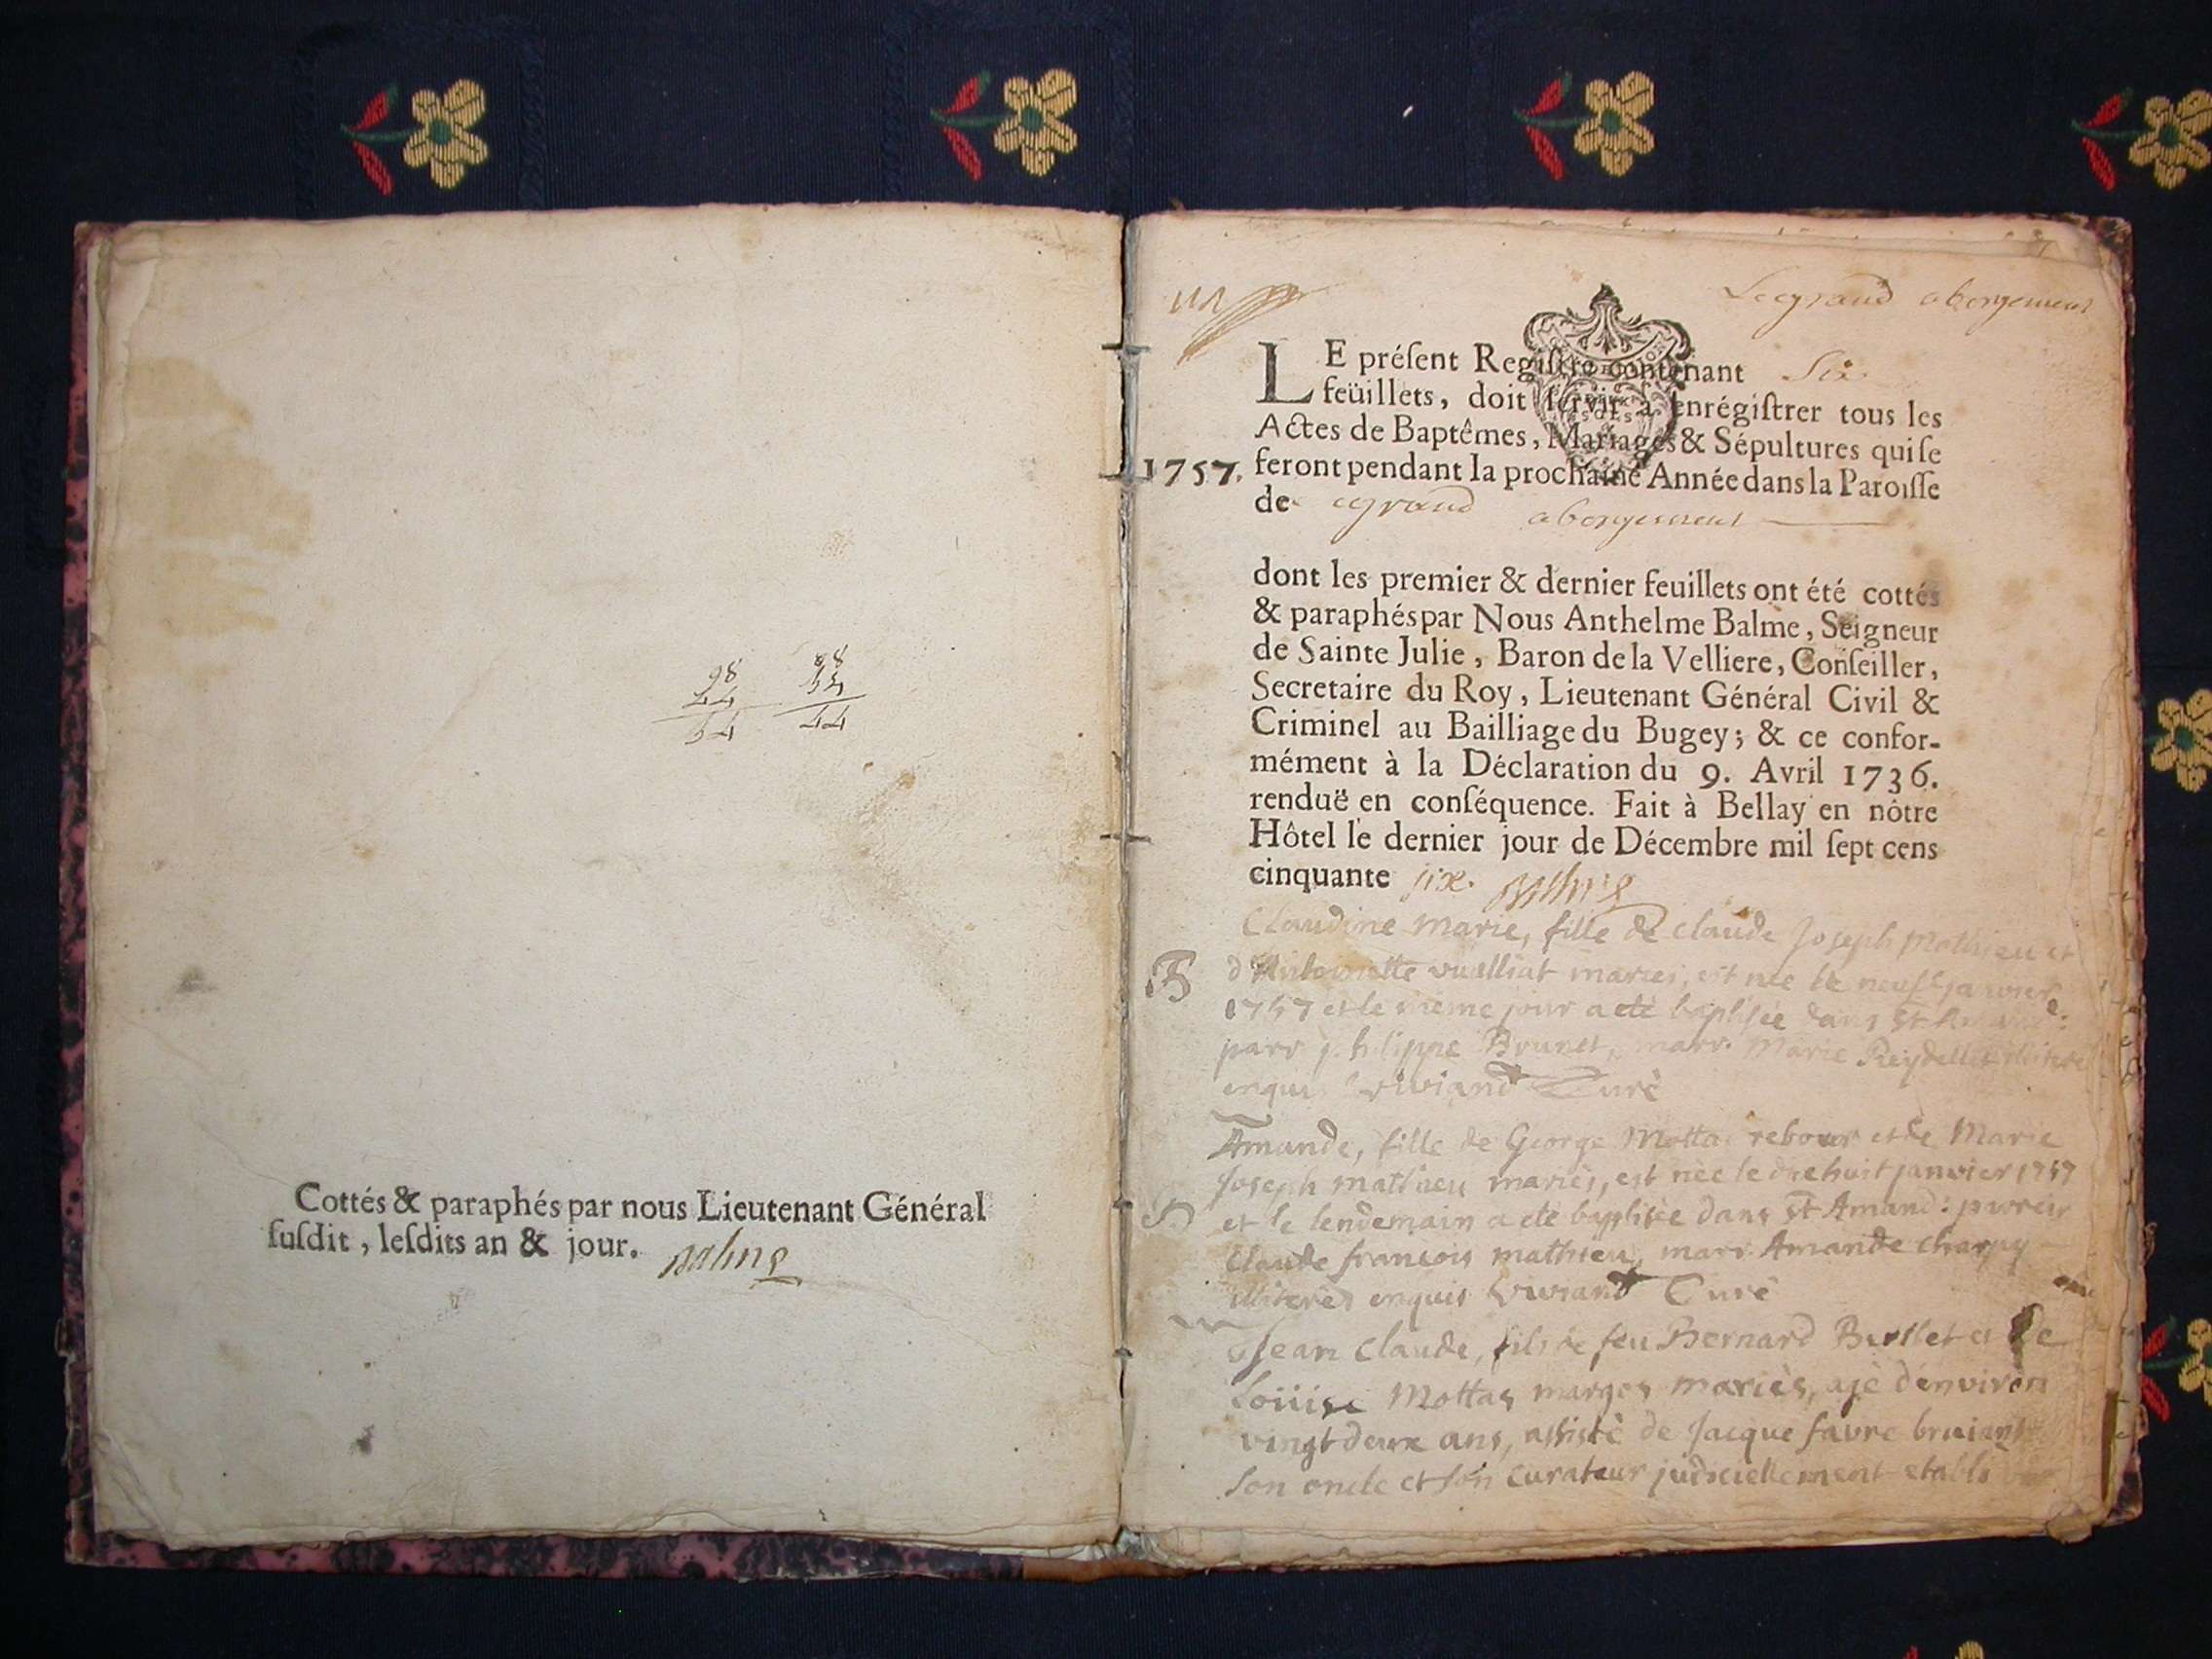 98 88
44 44
54 44
Cottés & paraphés par nous Lieutenant Général
ſuſdit, leſdits an & jour. Balme
Legrand abergement
LE préſent Regiſtre contenant Six
feüillets, doit ſervir à enrégiſtrer tous les
Actes de Baptêmes, Mariages & Sépultures qui ſe
1757. feront pendant la prochaine Année dans la Paroiſſe
de grand abergement
dont les premier & dernier feuillets ont été cottés
& paraphés par Nous Anthelme Balme, Seigneur
de Sainte Julie, Baron de la Velliere, Conſeiller,
Secretaire du Roy, Lieutenant Général Civil &
Criminel au Bailliage du Bugey; & ce confor-
mément à la Déclaration du 9. Avril 1736.
renduë en conſéquence. Fait à Bellay en nôtre
Hôtel le dernier jour de Décembre mil ſept cens
cinquante six. Balme
Claudine Marie, fille de claude Joseph mathieu et
B d'Antoinette vualliat mariés, est née le neuf janvier
1757 et le même jour a eté baptisée dans St Amand:
parr philippe Brunet, marr. Marie Reydellet
enquis Viviand Curé
Amande, fille de George Motta rebour et de Marie
Joseph mathieu mariés, est née le dixhuit janvier 1757
B et le lendemain a eté baptisée dans St Amand:
Claude françois mathieu, marr. Amande charpy
illiterés enquis Viviand Curé
Jean Claude, fils de feu Bernard Ballet et de
Loüise Mottas mariés, agé d'environ
vingt deux ans, assisté de Jacque favre
son oncle et son curateur judiciellement etabli